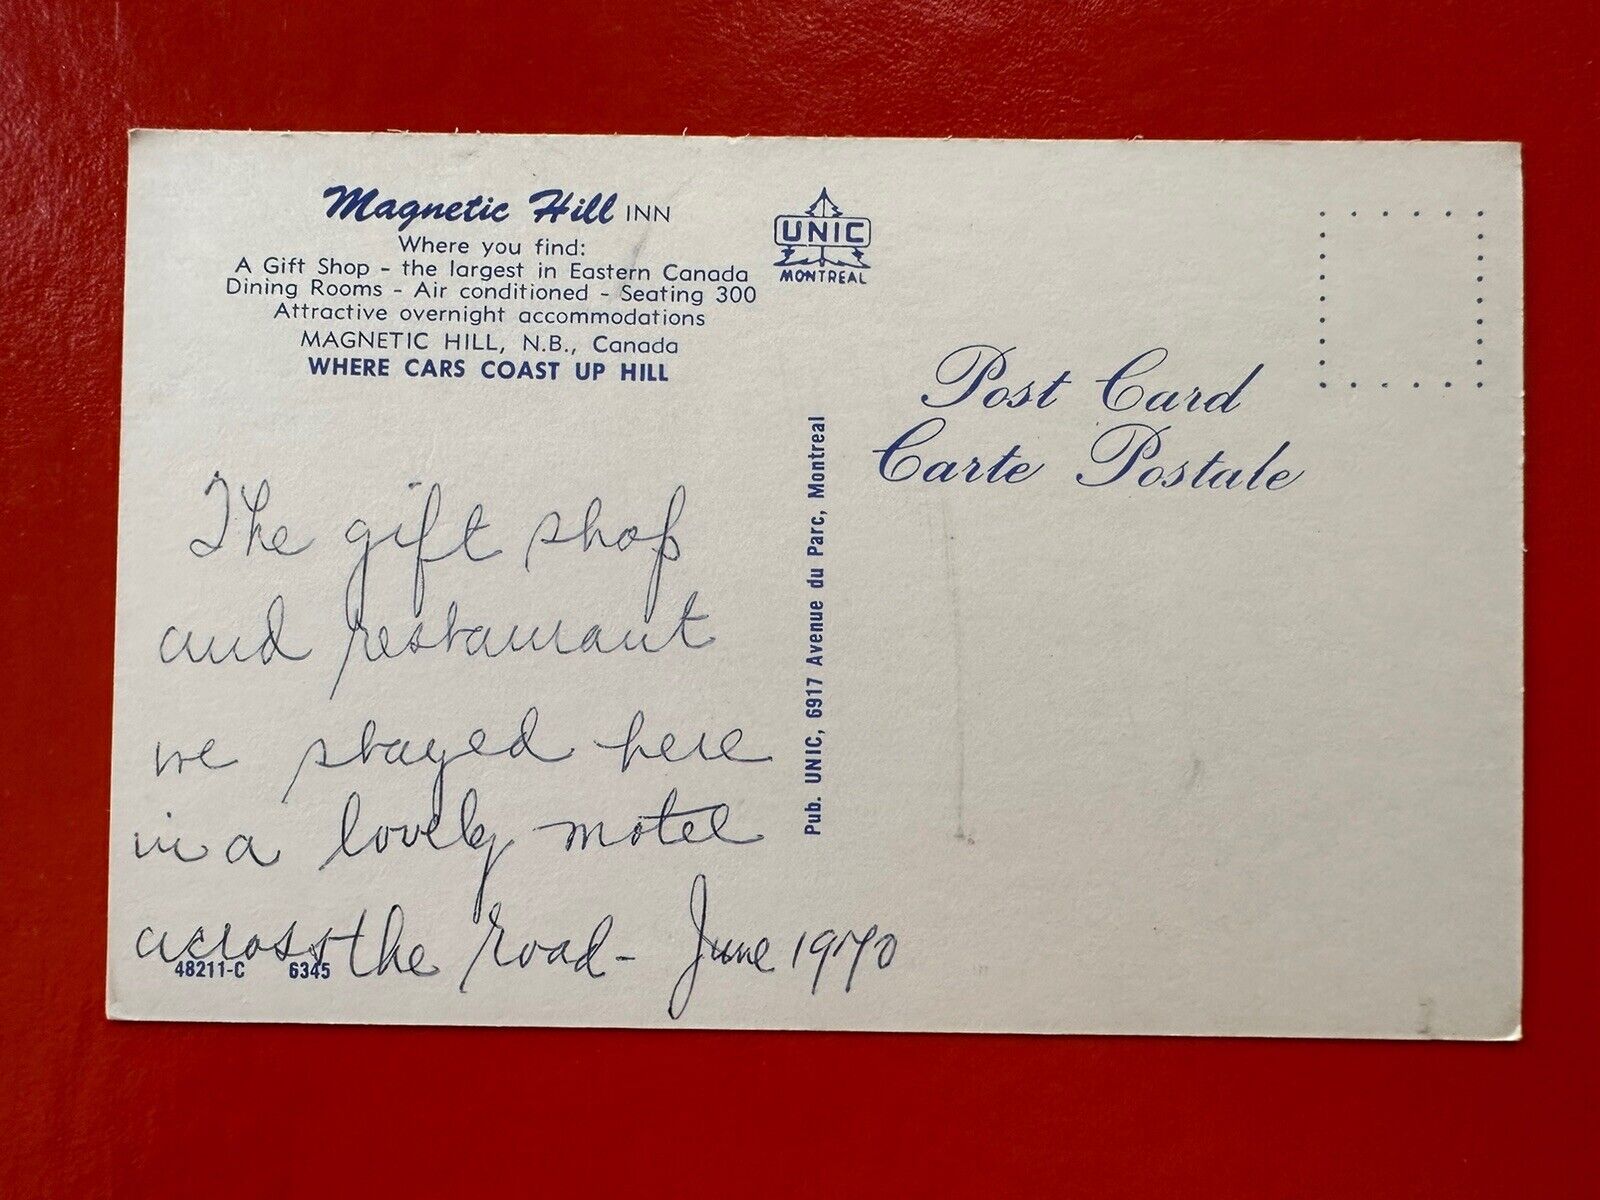 Magnetic Hill INN
Where you find:
A Gift Shop - the largest in Eastern Canada
Dining Rooms - Air conditioned - Seating 300
Attractive overnight accommodations
MAGNETIC HILL, N.B., Canada
WHERE CARS COAST UP HILL
The gift shop
and restaurant
we stayed here
in a lovely motel
across the road - June 1970
48211-C 6345
UNIC
MONTREAL
Pub. UNIC, 6917 Avenue du Parc, Montreal
Post Card
Carte Postale